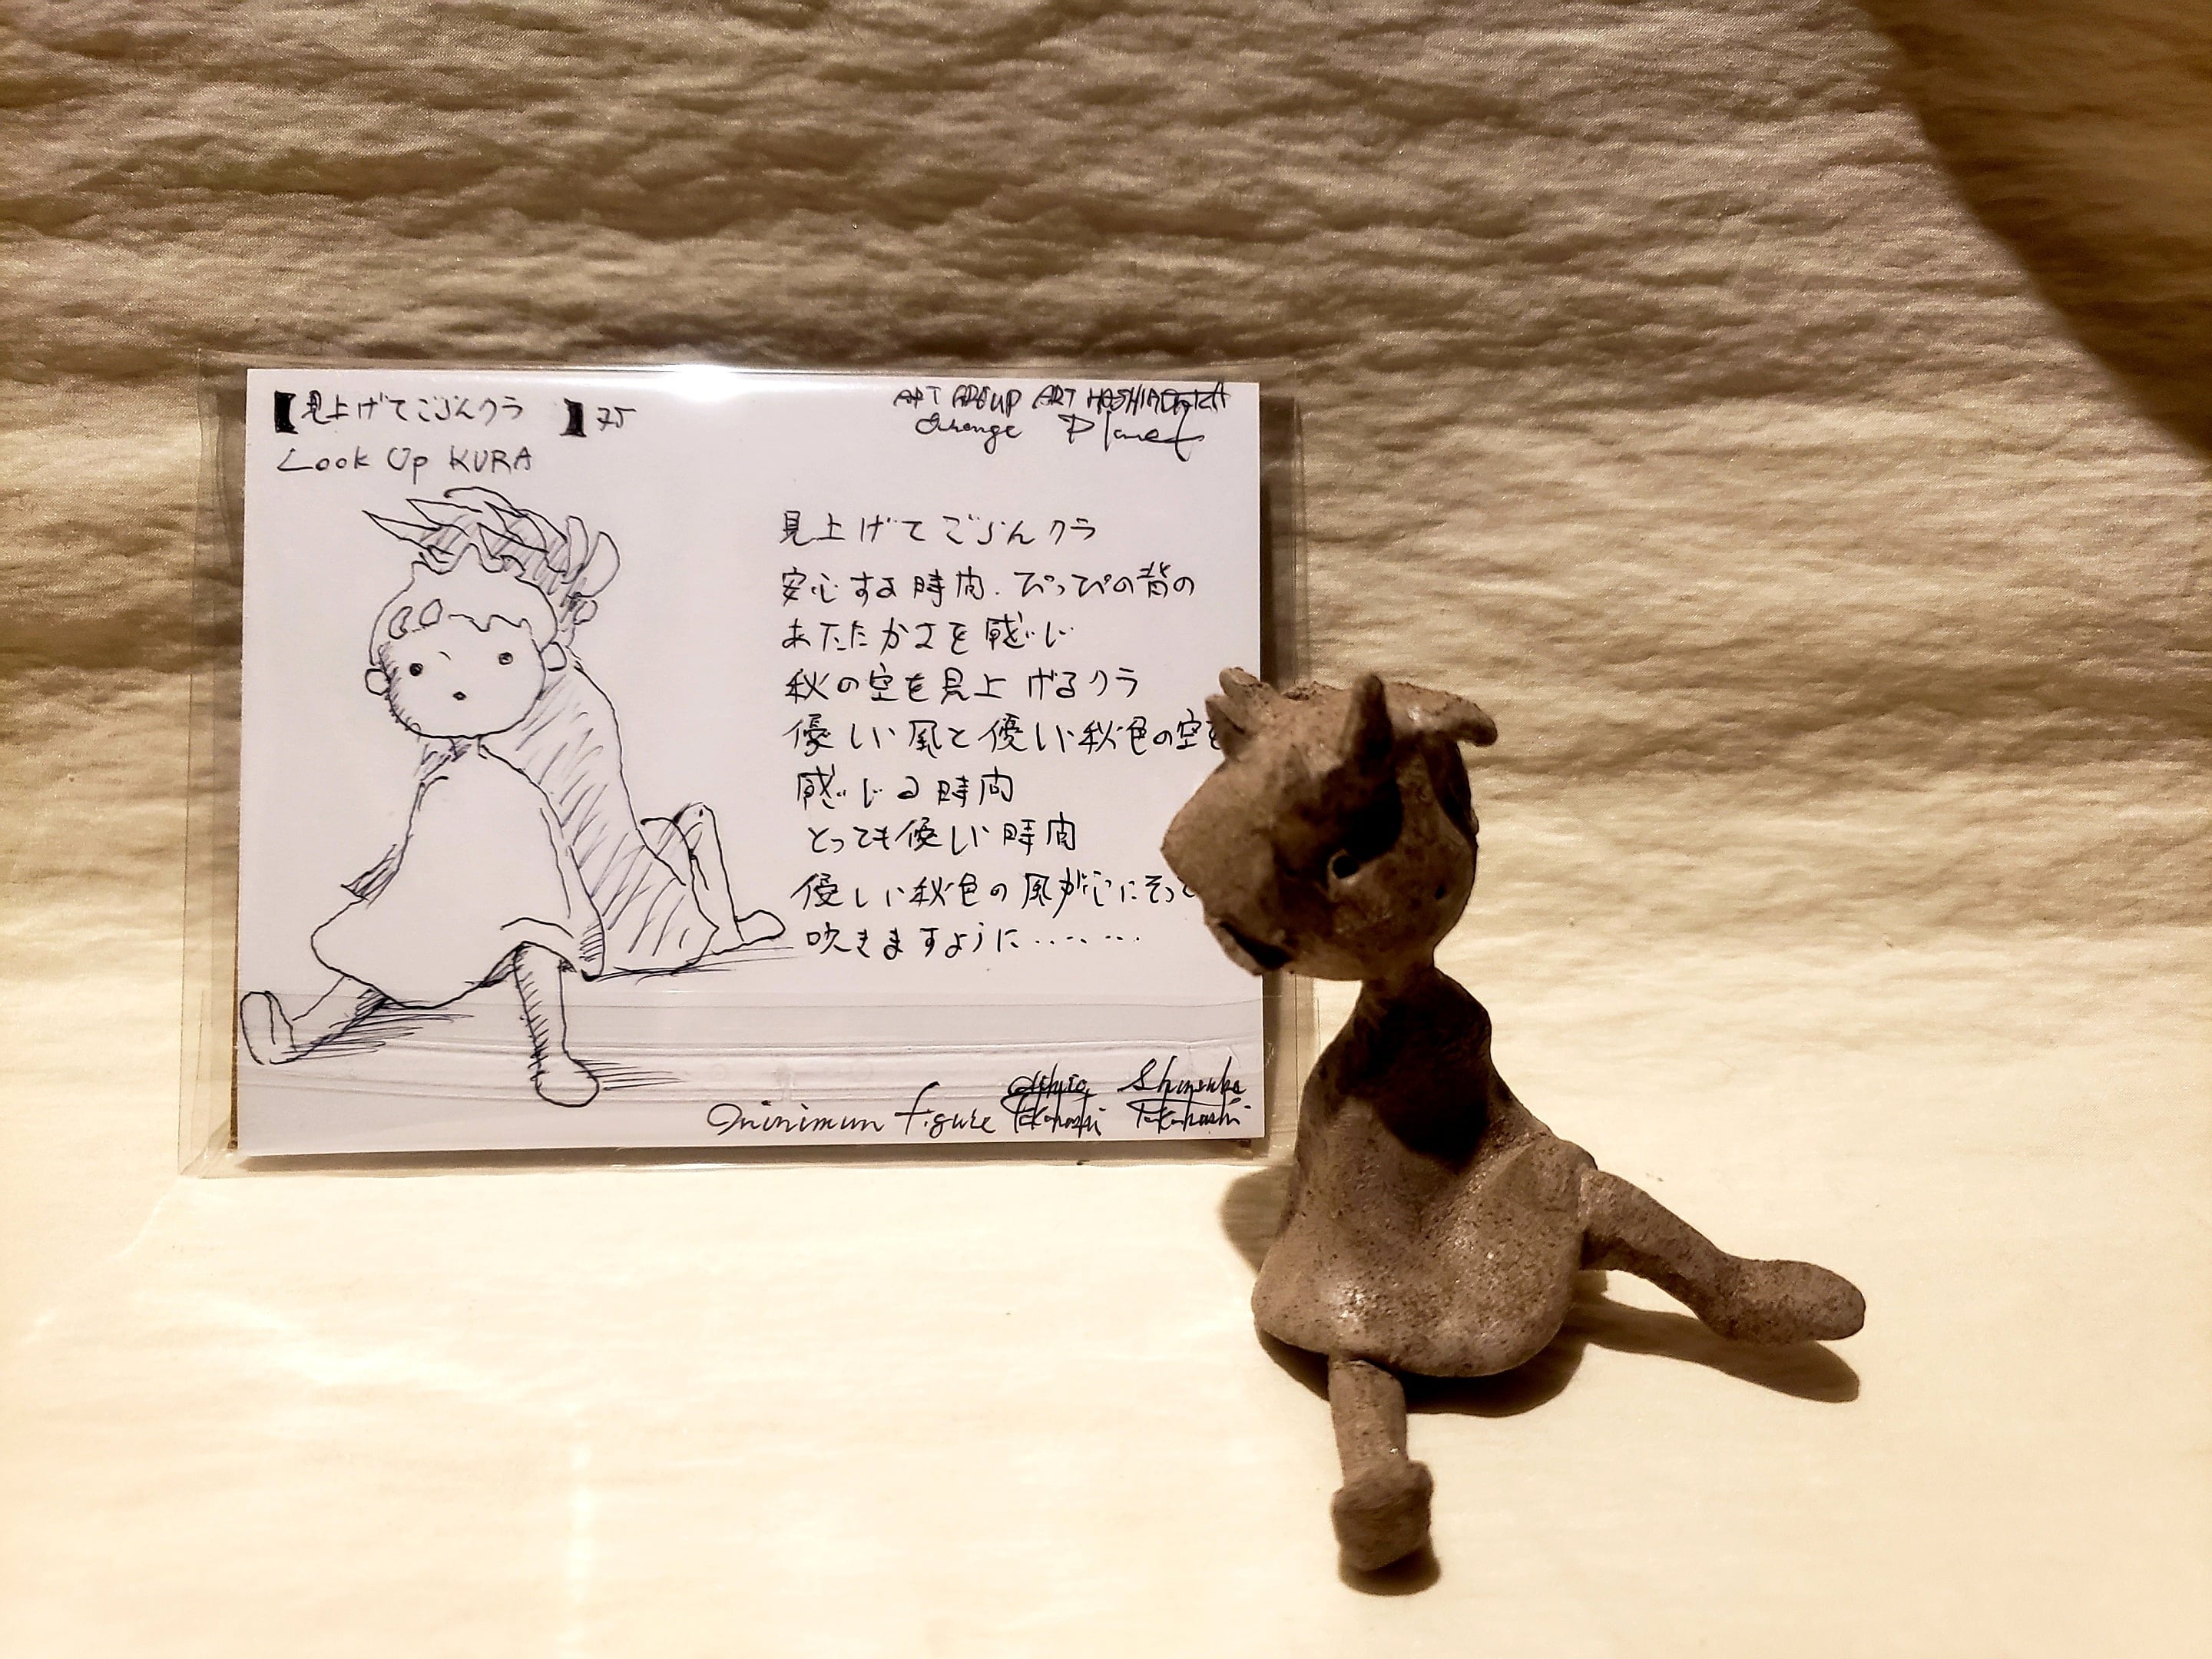 【見上げてごらんクラ 】75
Look Up KURA
ART GROUP ART HASHIRA
Orange Planet
見上げてごらんクラ
安心する時間.ぴっぴの背の
あたたかさを感じ
秋の空を見上げるクラ
優しい風と優しい秋色の空を
感じる時間
とっても優しい時間
優しい秋色の風が心にそっと
吹きますように‥‥‥‥
Oninimun figure
Takahashi
Shinsuke Takahashi